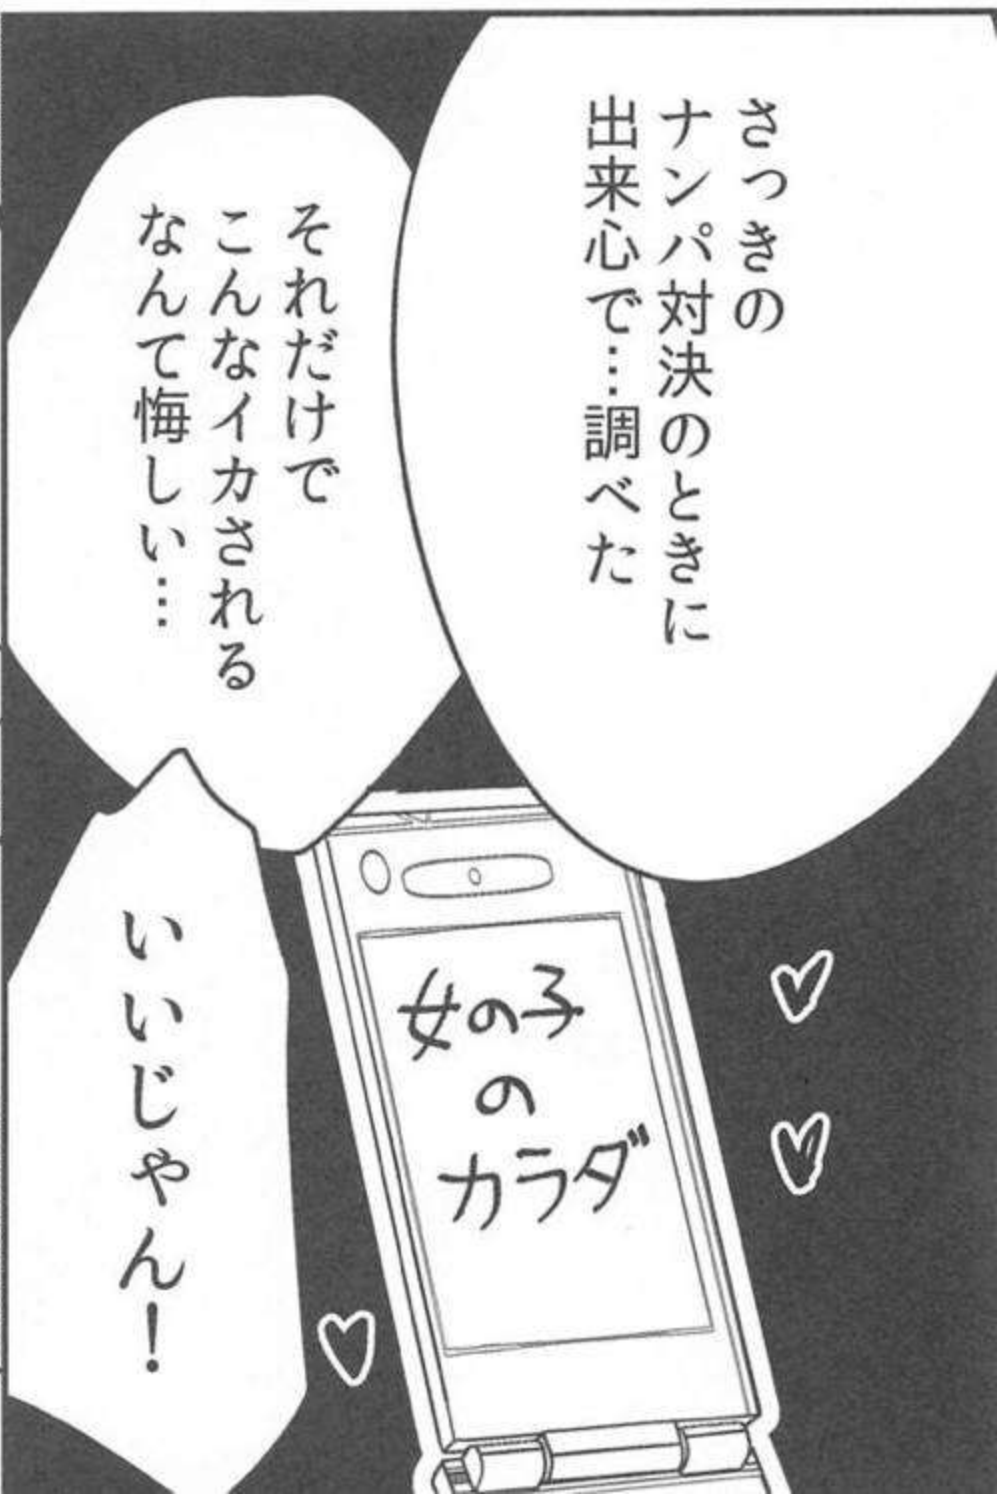 さっきの
ナンパ対決のときに
出来心で…調べた
それだけで
こんなイカされる
なんて悔しい…
いいじゃん！
女の子
の
カラダ